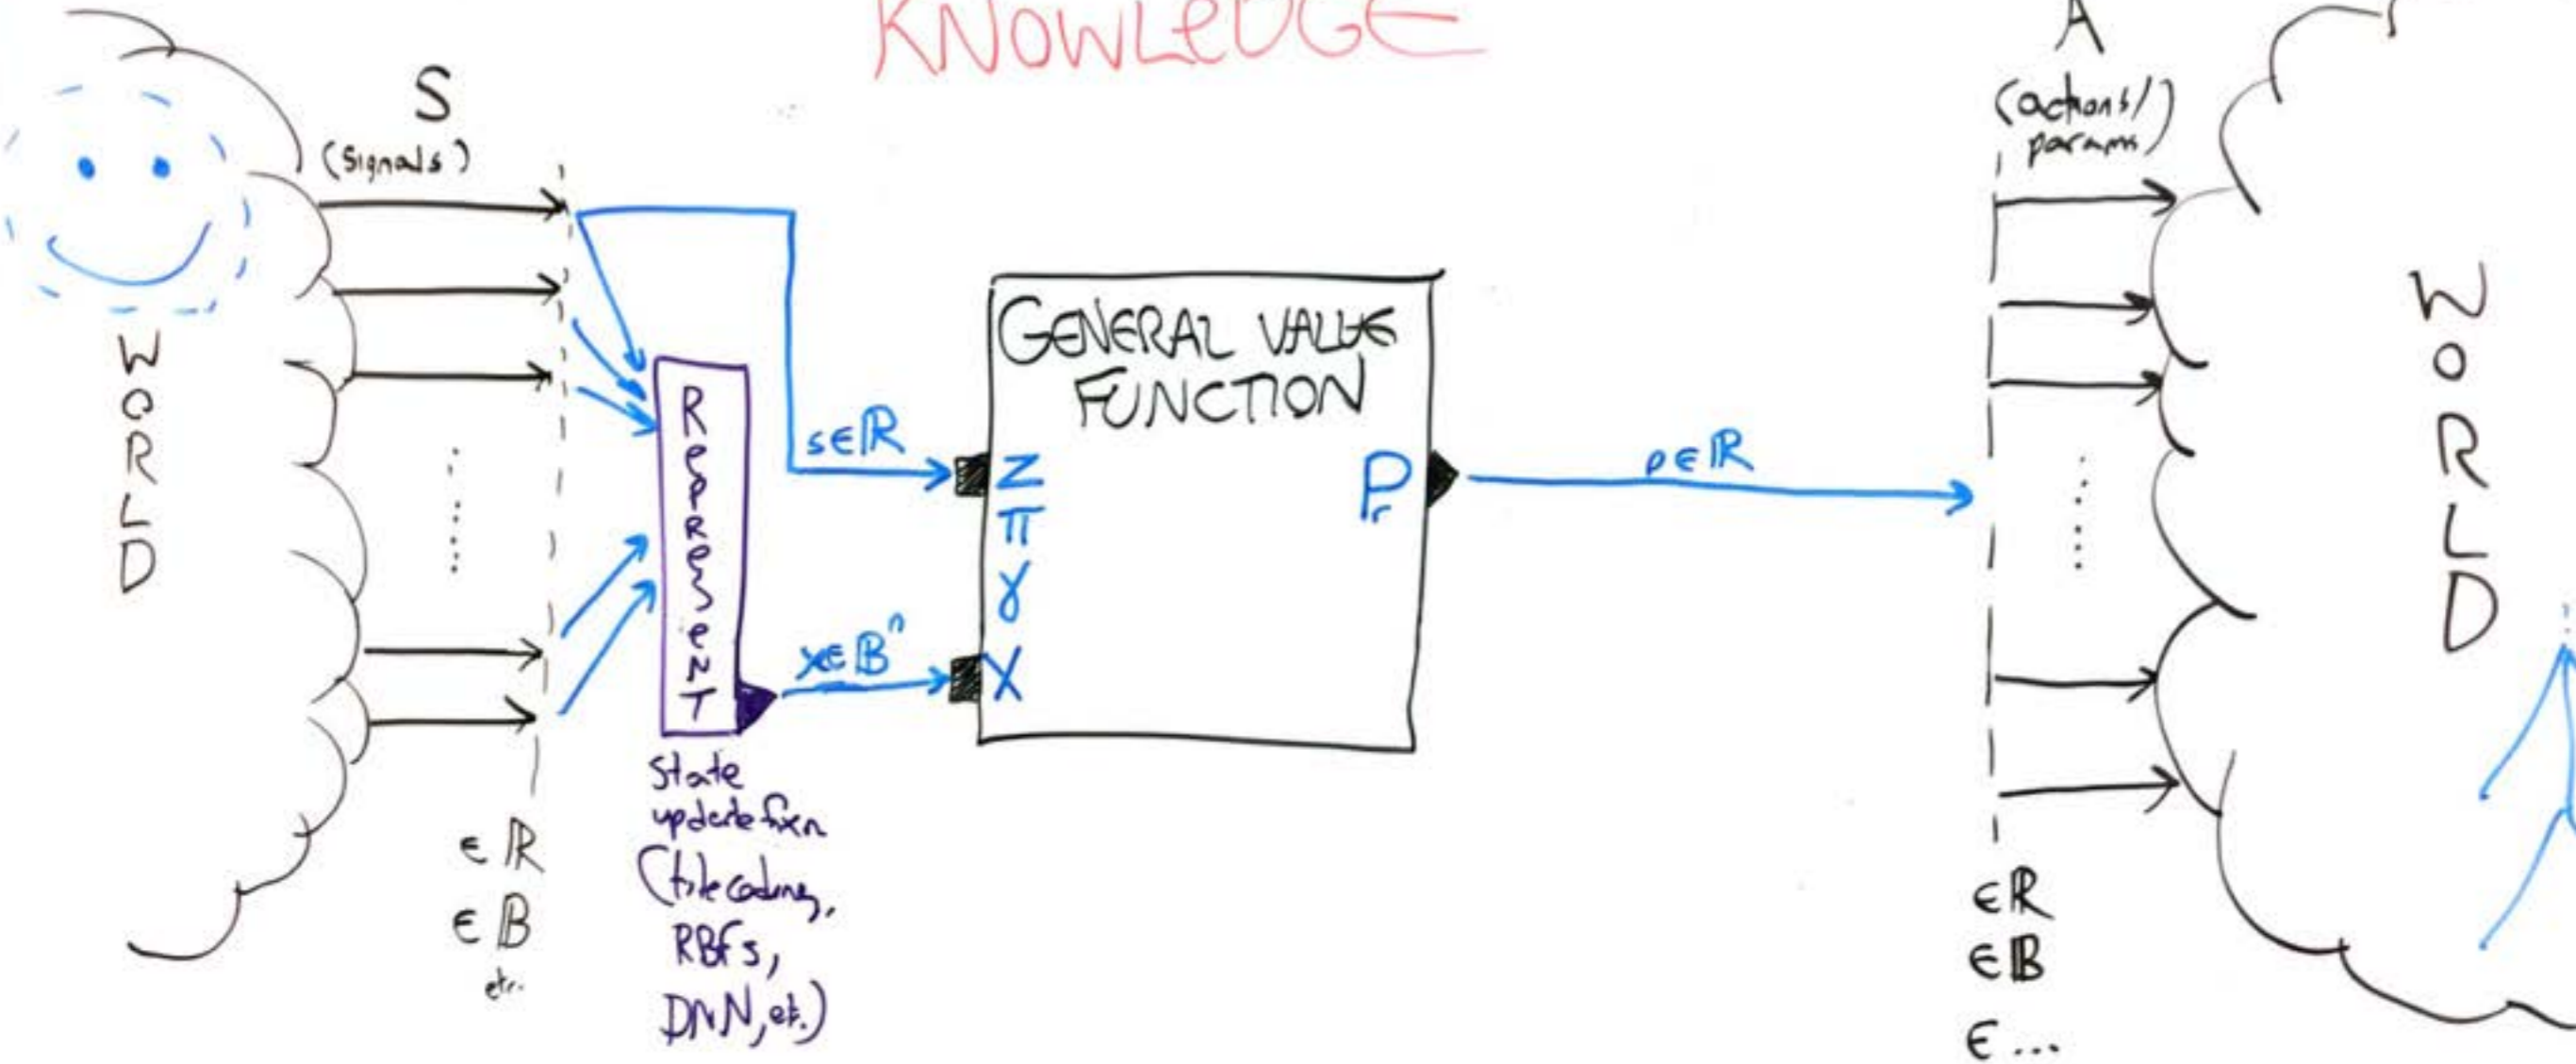 KNOWLEDGE
S
(signals)
WORLD
∈ ℝ
∈ 𝔹
etc.
Represent
State
update fxn
(tile coding,
RBFs,
DNN, etc.)
s∈ℝ
x∈𝔹ⁿ
GENERAL VALUE
FUNCTION
Z
π
γ
X
P
p∈ℝ
A
(actions/
params)
∈ℝ
∈𝔹
∈ ...
WORLD